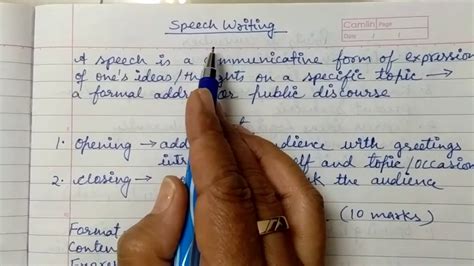 Speech Writing
Camlin Page
Date / /
A speech is a communicative form of expression
of one's ideas/thoughts on a specific topic →
a formal address or public discourse
1. Opening → audience with greetings
self and topic/occasion
2. closing → the audience
(10 marks)
Format